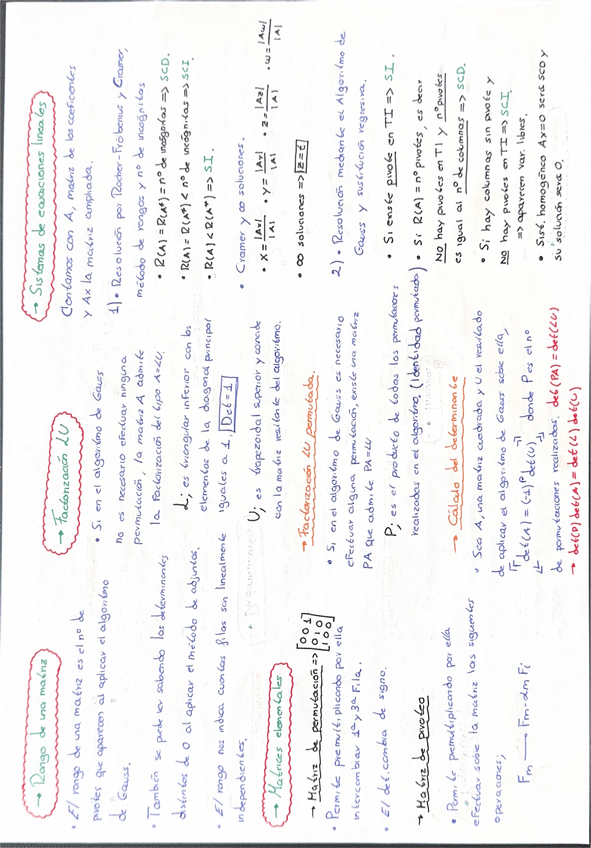 → Rango de una matriz
• El rango de una matriz es el nº de
pivotes que aparecen al aplicar el algoritmo
de Gauss.
• También se puede ver sabendo los determinantes
distintos de 0 al aplicar el método de adjuntos.
• El rango nos indica cuantas filas son linealmente
independientes.
→ Matrices elementales
→ Matriz de permutación => [0 0 1
0 1 0
1 0 0]
• Permite premultiplicando por ella
intercambiar 1ª y 3ª Fila.
• El det. cambia de signo.
→ Matriz de pivoteo
• Permite premultiplicando por ella
efectuar sobre la matriz las siguientes
operaciones;
Fm → Fm - αm Fi
→ Factorización LU
• Si en el algoritmo de Gauss
no es necesario efectuar ninguna
permutación, la matriz A admite
la factorización del tipo A=LU.
L; es triangular inferior con los
elementos de la diagonal principal
iguales a 1, |Det = 1|
U; es trapezoidal superior y coincide
con la matriz resultante del algoritmo.
→ Factorización LU permutada.
• Si en el algoritmo de Gauss es necesario
efectuar alguna permutación, existe una matriz
PA que admite PA=LU
P; es el producto de todas las permutaciones
realizadas en el algoritmo, (identidad permutada)
→ Cálculo del determinante
• Sea A, una matriz cuadrada y U el resultado
de aplicar el algoritmo de Gauss sobre ella,
det(A) = (-1)ᵖ det(U) donde P es el nº
de permutaciones realizadas, det(PA) = det(LU)
→ det(P) det(A) = det(L) det(U)
→ Sistemas de ecuaciones lineales
Contamos con A, matriz de los coeficientes
y Ax la matriz ampliada.
1) • Resolución por Rocher-Fröbenius y Cramer,
método de rangos y nº de incógnitas
• R(A) = R(A*) = nº de incógnitas => SCD.
• R(A) = R(A*) < nº de incógnitas => SCI
• R(A) < R(A*) => SI.
• Cramer y ∞ soluciones.
• X = |Ax|/|A| • Y = |Ay|/|A| • Z = |Az|/|A| • ω = |Aω|/|A|
• ∞ soluciones => |z=t|
2) • Resolución mediante el Algoritmo de
Gauss y sustitución regresiva.
• Si existe pivote en TI => SI.
• Si R(A) = nº pivotes, es decir
NO hay pivotes en TI y nº pivotes
es igual al nº de columnas => SCD.
• Si hay columnas sin pivote y
NO hay pivotes en TI => SCI
=> aparecen var. libres.
• Sist. homogéneo Ax=0 será SCD y
su solución será 0.